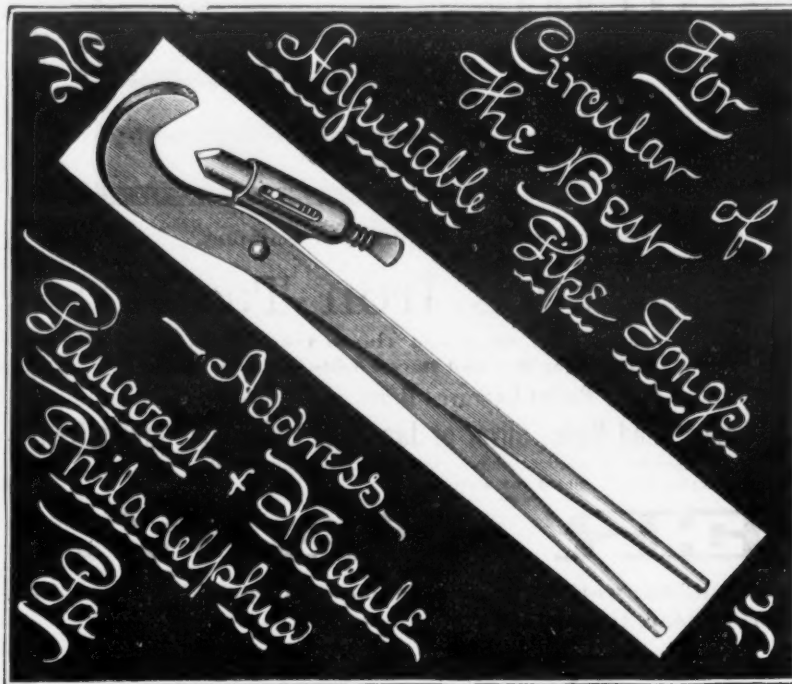 For
Circular of
The Best
Adjustable Pipe Tongs
Address
Pancoast & Maule
Philadelphia
Pa